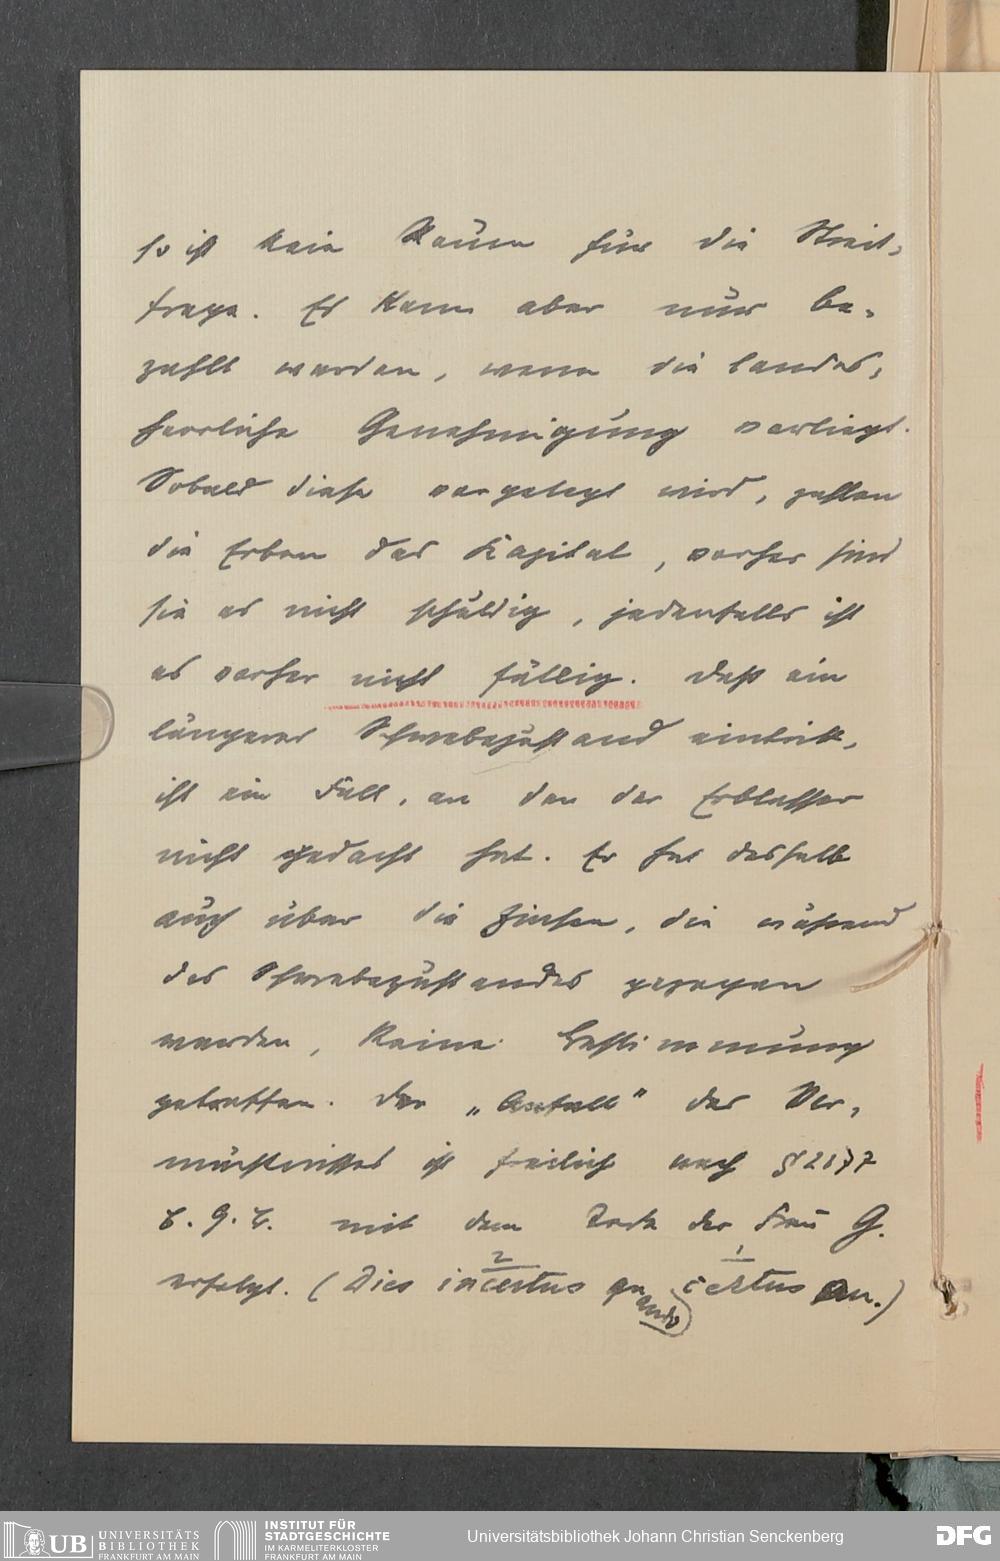 so ist kein Raum für die Streit-
frage. Es kann aber nur be-
zahlt werden, wenn die landes-
herrliche Genehmigung vorliegt.
Sobald diese vorgelegt wird, zahlen
die Erben das Kapital, vorher sind
sie es nicht schuldig, jedenfalls ist
es vorher nicht fällig. Daß ein
längerer Schwebezustand eintritt,
ist ein Fall, an den der Erblasser
nicht gedacht hat. Er hat deshalb
auch über die Zinsen, die während
des Schwebezustandes gezogen
werden, keine Bestimmung
getroffen. Der „Anfall" des Ver-
mächtnisses ist freilich nach § 2177
B.G.B. mit dem Tode der Frau G.
erfolgt. (Dies incertus quando, certus an.)
2
1
UB UNIVERSITÄTS
BIBLIOTHEK
FRANKFURT AM MAIN
INSTITUT FÜR
STADTGESCHICHTE
IM KARMELITERKLOSTER
FRANKFURT AM MAIN
Universitätsbibliothek Johann Christian Senckenberg
DFG